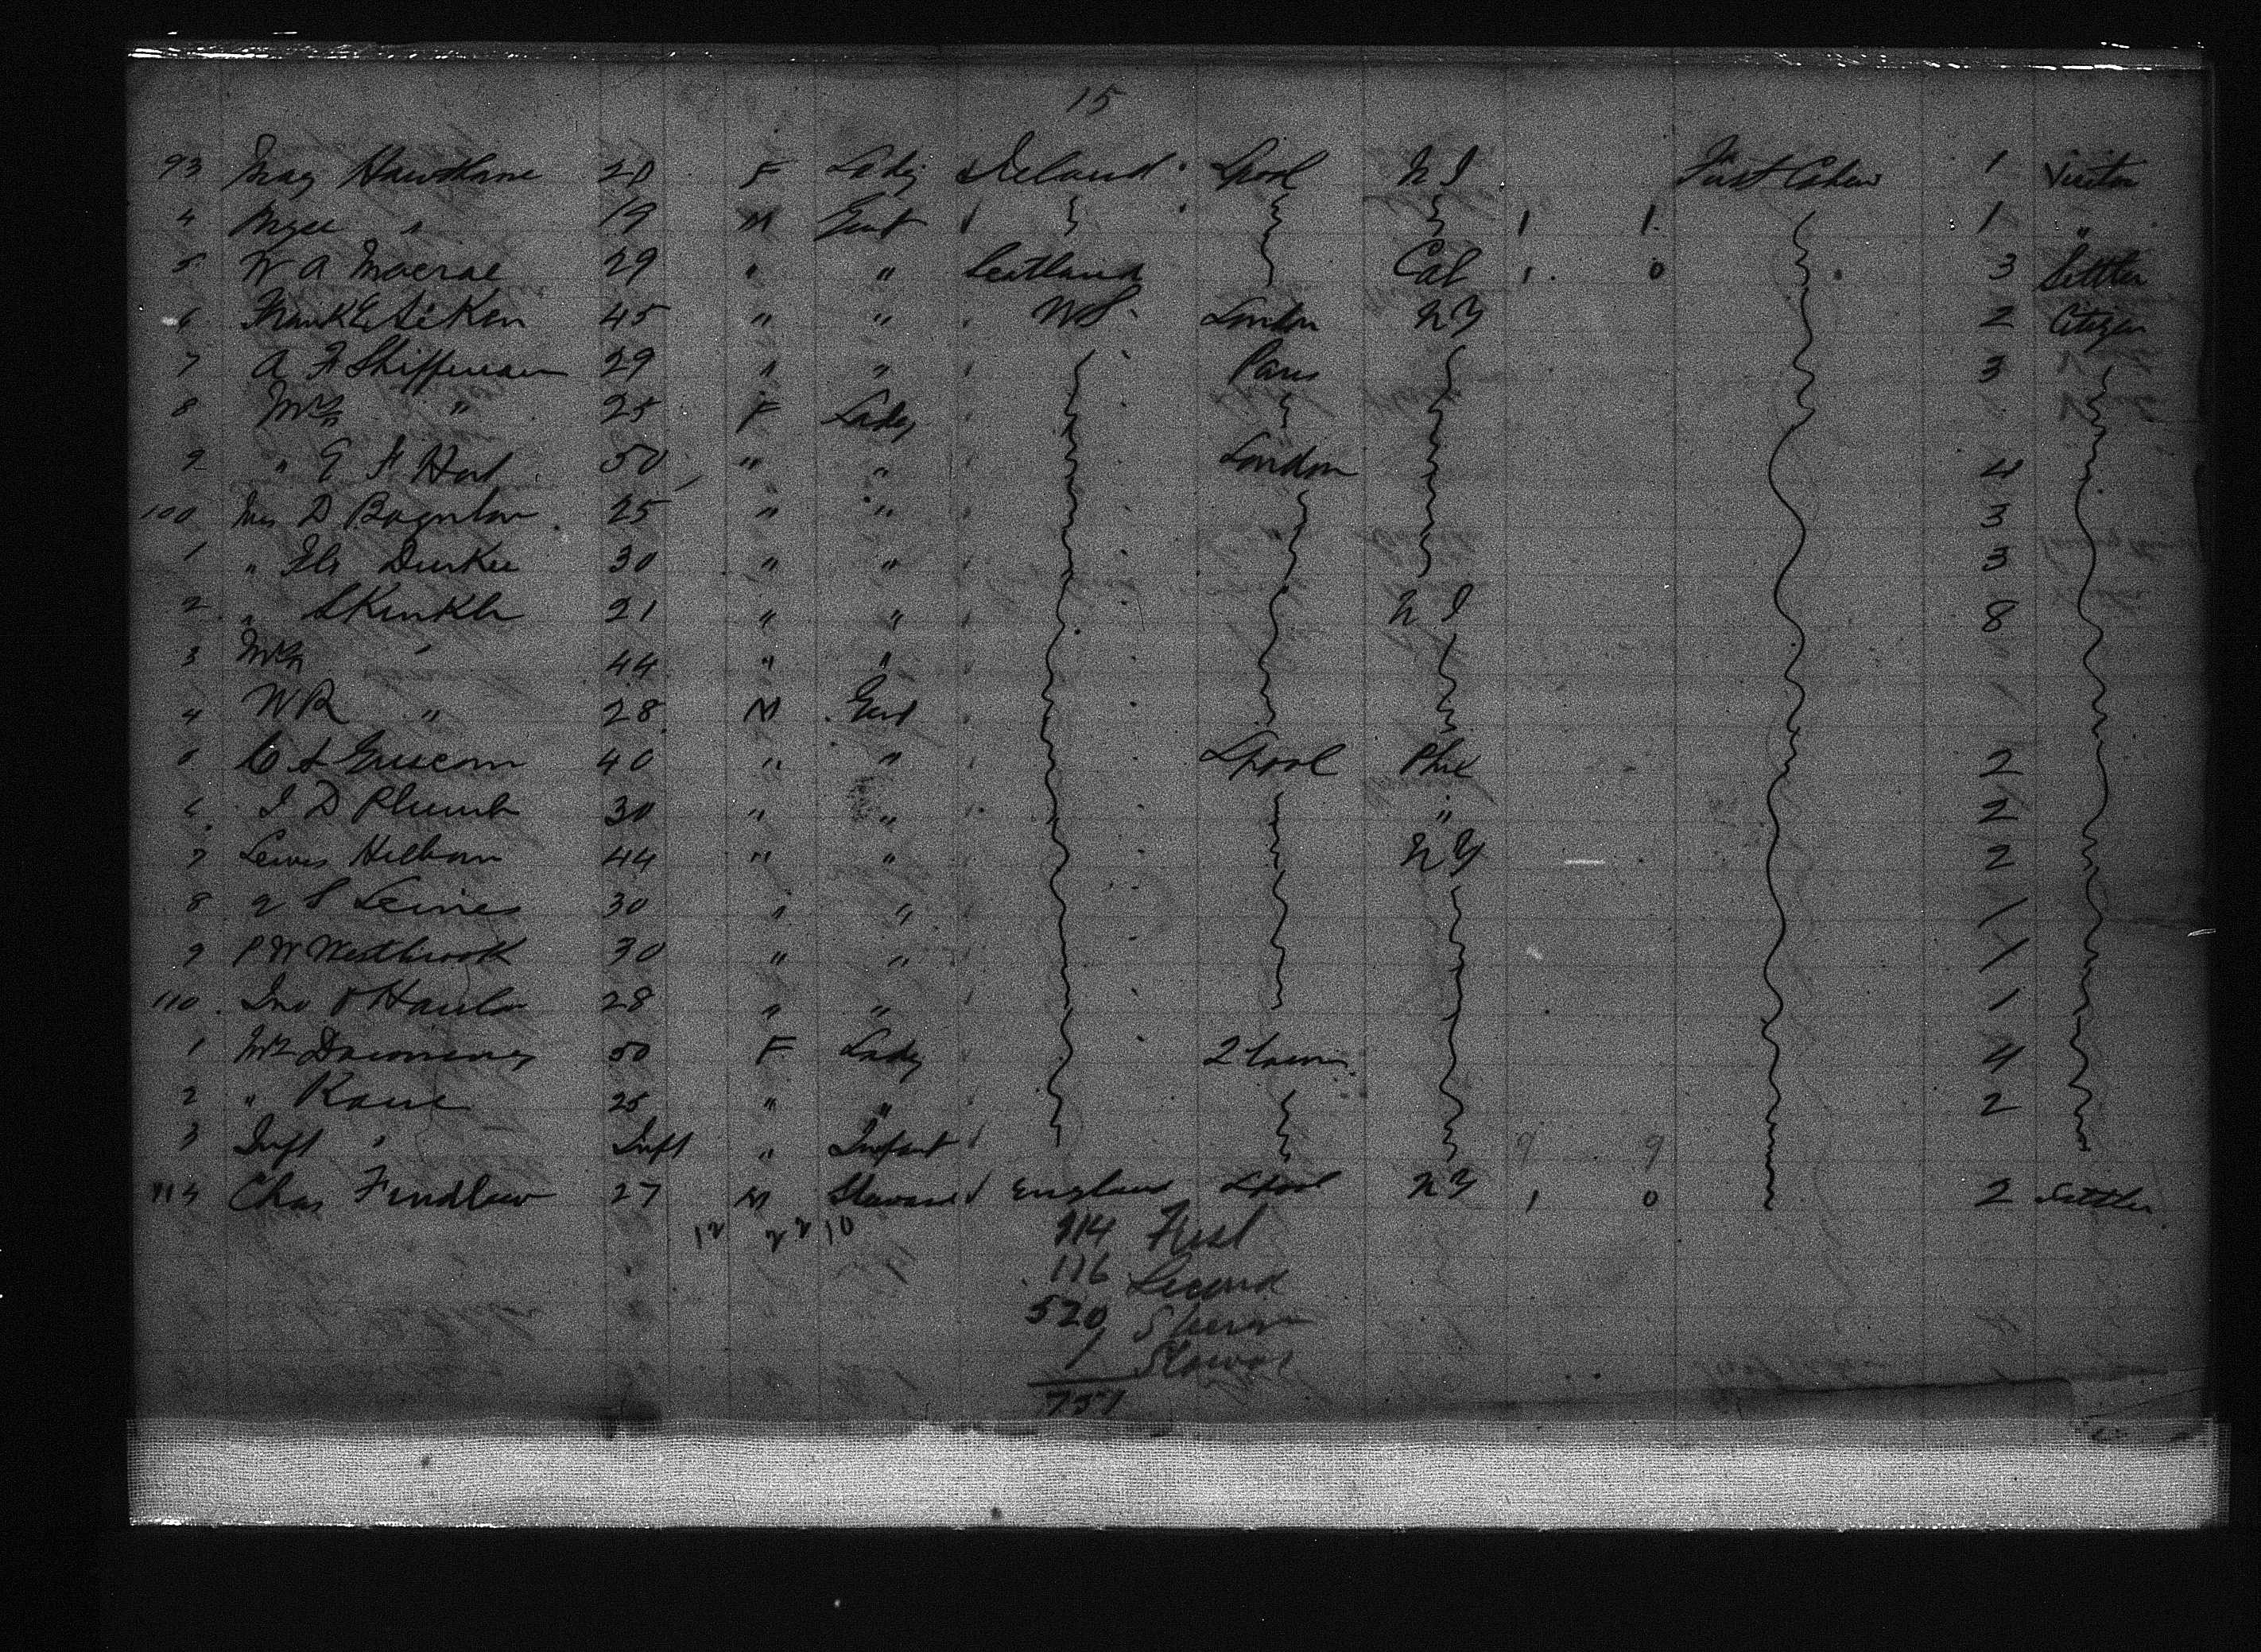 15
93 May Hawthorne 20 F Lady Ireland Lpool N J First Cabin 1 Visitor
4 " 19 M Gent 1 1 1 "
5 W A Macrae 29 " " Scotland Cal 1 0 3 Settler
6 Frank E Aiken 45 " " US London NY 2 Citizen
7 A F Shiffman 29 " " Paris 3
8 Mrs " 25 F Lady
9 " G F Hart 50 " " London 4
100 D 25 " " 3
1 " Durkee 30 " " 3
2 " S Kunkle 21 " " N J 8
3 Mrs " 44 " "
4 W R " 28 M Gent
5 C A Griscom 40 " " Lpool Phil 2
6 J D Plumb 30 " " " 2
7 Lewis 44 " " NY 2
8 30 " " 1
9 P W Westbrook 30 " " 1
110 Jno 28 " " 1
1 Mrs 50 F Lady 4
2 " Kane 25 " " 2
3 Inft " Inft " Infant 9 9
114 Chas Findlow 27 M England Lpool NY 1 0 2 Settler
12 2 2 10
114 First
116 Second
520
1
751